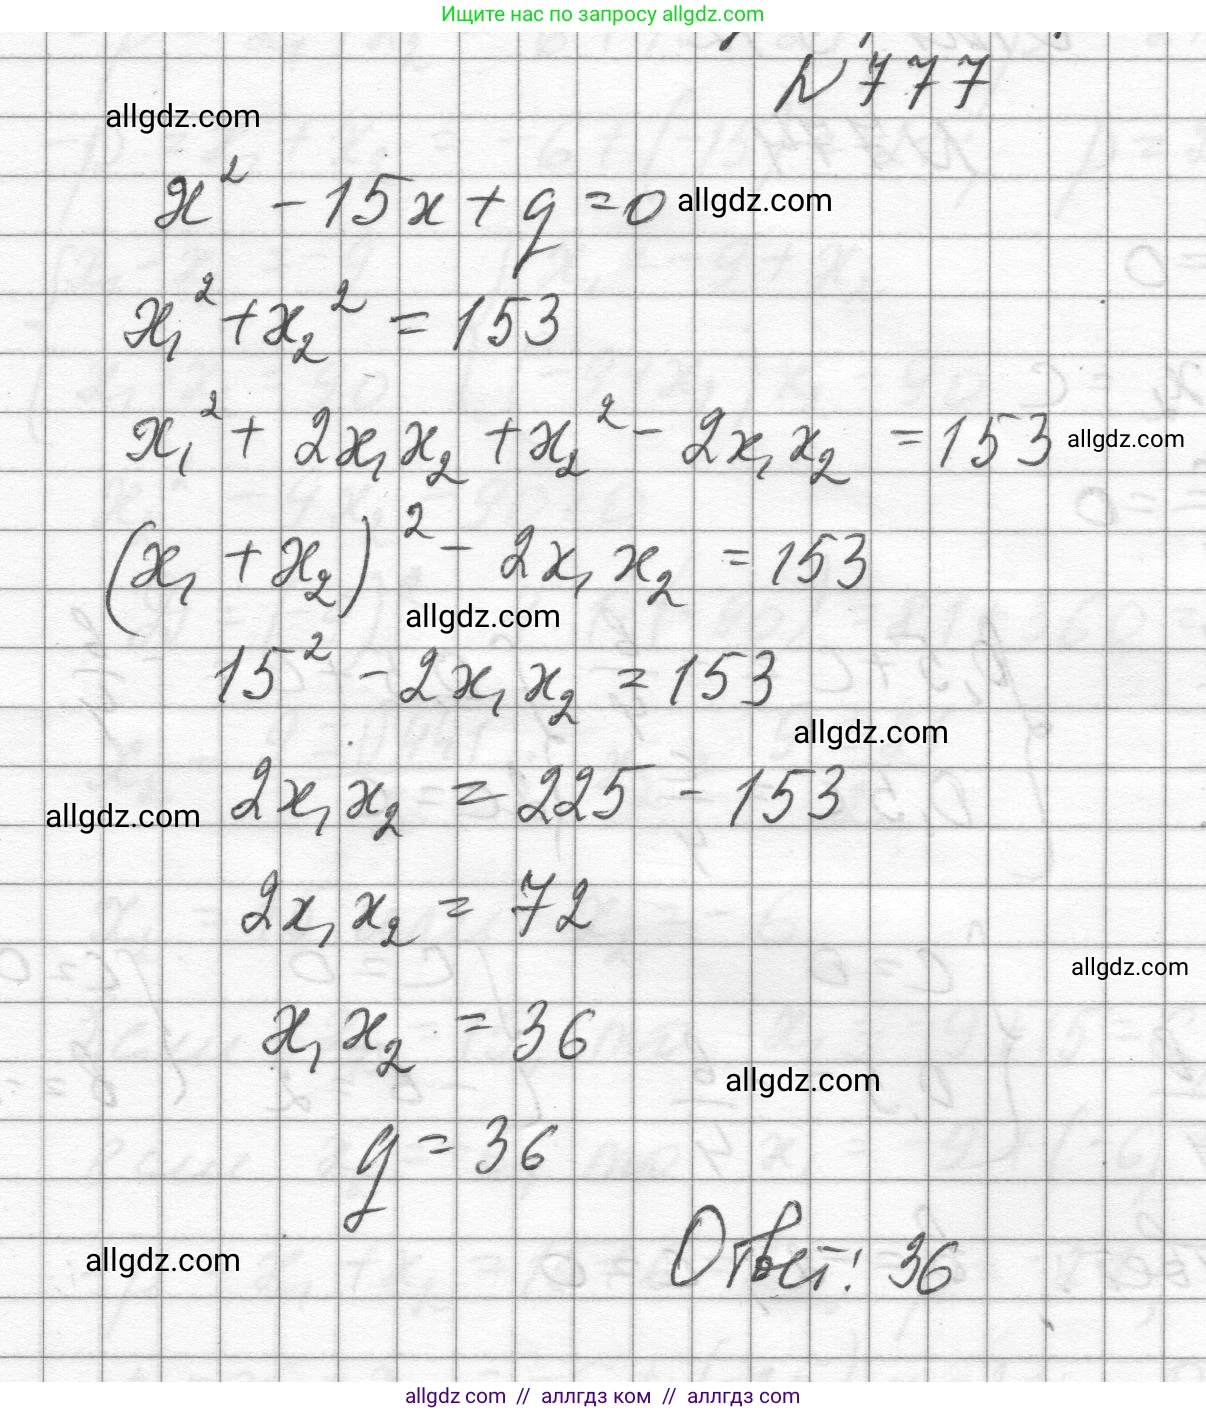 Ищите нас по запросу allgdz.com
N 777
allgdz.com
x² - 15x + q = 0 allgdz.com
x₁² + x₂² = 153
x₁² + 2x₁x₂ + x₂² - 2x₁x₂ = 153 allgdz.com
(x₁ + x₂)² - 2x₁x₂ = 153
allgdz.com
15² - 2x₁x₂ = 153
allgdz.com
allgdz.com 2x₁x₂ = 225 - 153
2x₁x₂ = 72
allgdz.com
x₁x₂ = 36
allgdz.com
q = 36
allgdz.com Ответ: 36
allgdz.com // аллгдз ком // аллгдз com